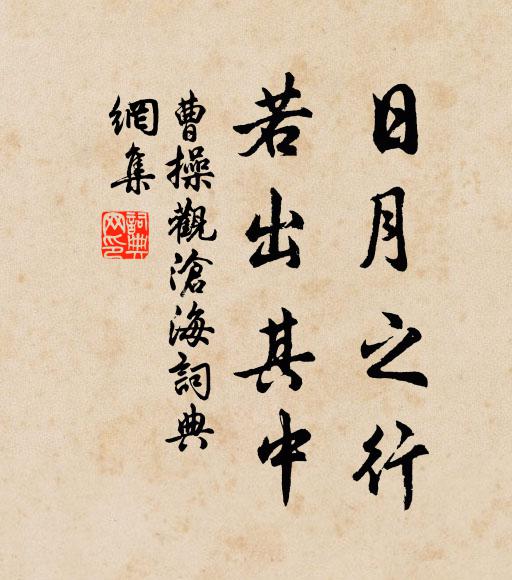 日月之行
若出其中
曹操觀滄海詞典
網集
詞典
网印